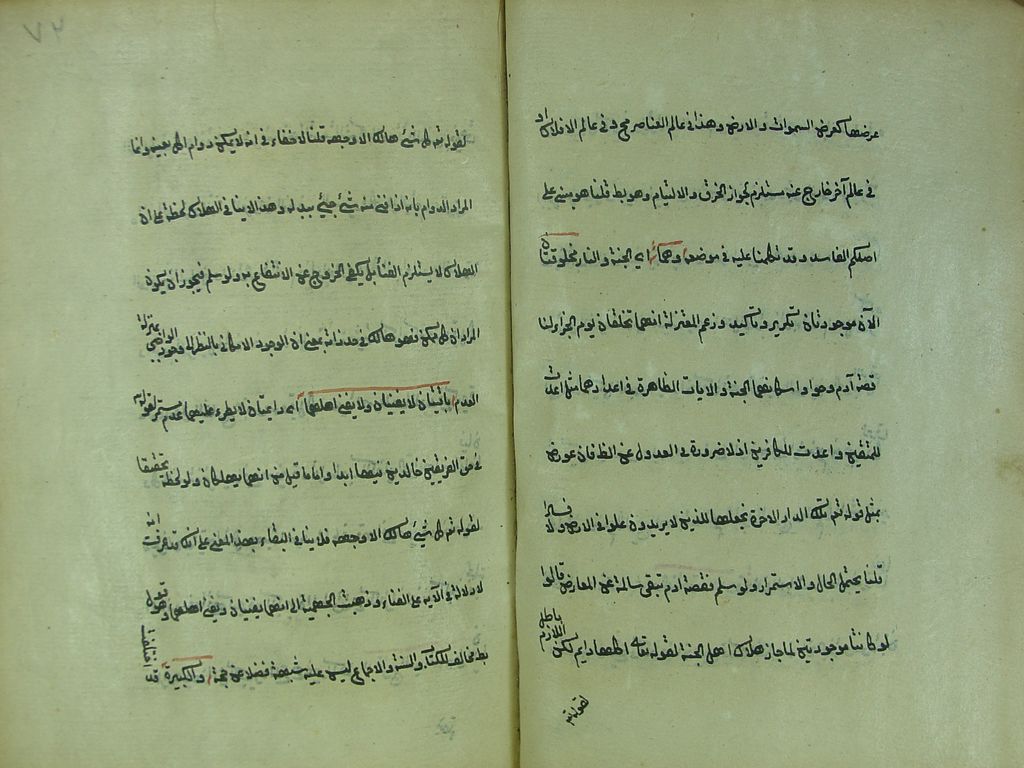 عرضها كعرض السموات والارض وهذا في عالم العناصر مح وفي عالم الافلاك او
في عالم آخر خارج عنه مستلزم لجواز الخرق والالتيام وهو بط قلنا هو مبني على
اصلكم الفاسد وقد تكلمنا عليه في موضعه وهما اي الجنة والنار مخلوقتان
الآن موجودتان تكرير وتأكيد وزعم المعتزلة انهما تخلقان يوم الجزاء لنا
قصة آدم وحوا واسكانهما الجنة والايات الظاهرة في اعدادهما مثل اعدت
للمتقين واعدت للكافرين اذ لا ضرورة في العدول عن الظ فان عورض
بمثل قوله تع تلك الدار الاخرة نجعلها للذين لا يريدون علوا في الارض ولا فسادا
قلنا يحتمل الحال والاستمرار ولو سلم فقصة ادم تبقى سالمة عن المعارض قالوا
لو كانتا موجودتين لما جاز هلاك اهل الجنة لقوله تعالى اكلها دايم لكن اللازم باطل
لقوله تع
٧٢
لقوله تع كل شئ هالك الا وجهه قلنا لا خفاء في انه لا يمكن دوام اكل بعينه وانما
المراد الدوام بانه اذا فني منه شئ جئ ببدله وهذا لا ينافي الهلاك لحظة على ان
الهلاك لا يستلزم الفنأ بل يكفي الخروج عن الانتفاع به ولو سلم فيجوز ان يكون
المراد ان كل ممكن فهو هالك في حد ذاته بمعنى ان الوجود الامكاني بالنظر الى وجود الواجبي بمنزلة
العدم باقيتان لا يفنيان ولا يفنى اهلهما اي دائمتان لا يطرء عليهما عدم مستمر لقوله تع
في حق الفريقين خالدين فيها ابدا واما ما قيل من انهما يهلكان ولو لحظة تحقيقا
لقوله تع كل شئ هالك الا وجهه فلا ينافي البقاء بهذا المعنى على انك قد عرفت انه
لا دلالة في الآية على الفناء وذهبت الجهمية الى انهما يفنيان ويفنى اهلهما وهو قول
بط مخالف للكتاب والسنة والاجماع ليس عليه شبهة فضلا عن حجة والكبيرة قد اختلفت